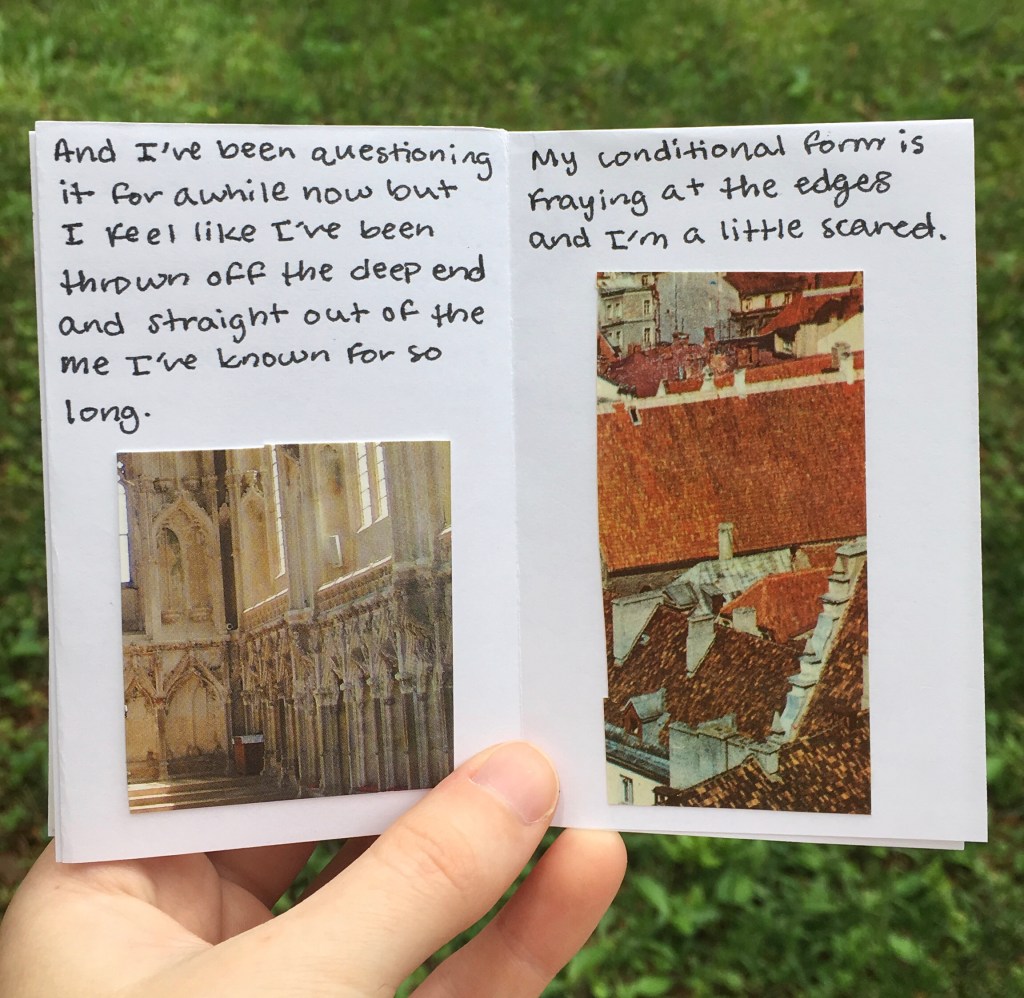 And I've been questioning
it for awhile now but
I feel like I've been
thrown off the deep end
and straight out of the
me I've known for so
long.
My conditional form is
fraying at the edges
and I'm a little scared.